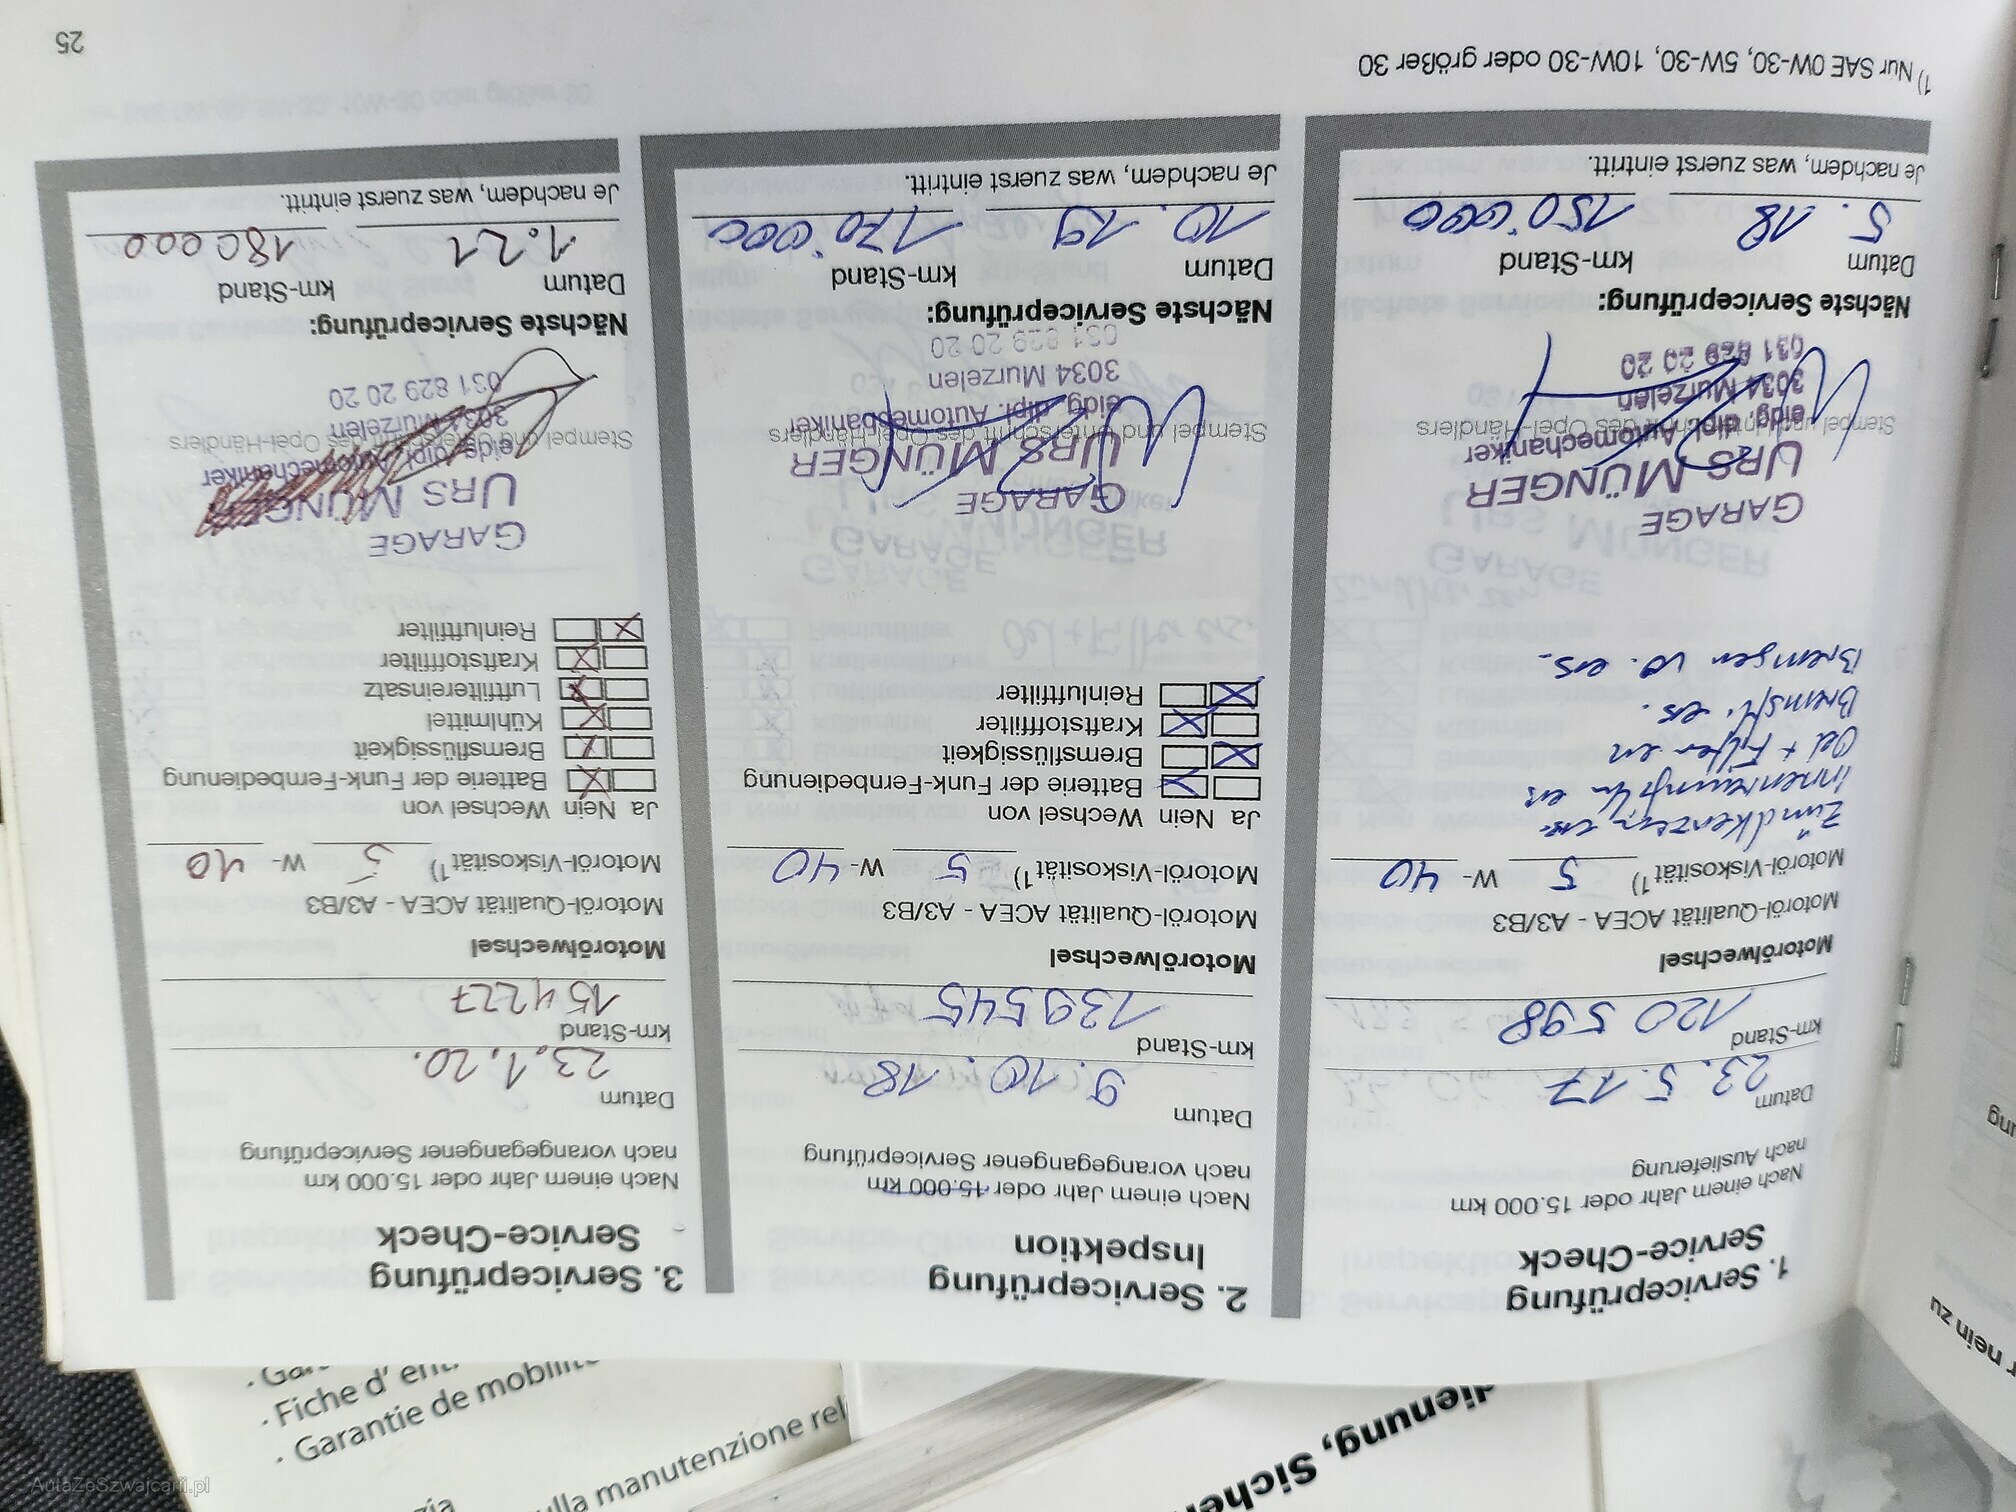 1. Serviceprüfung
Service-Check
Nach einem Jahr oder 15.000 km
nach Auslieferung
Datum
23. 5. 17
km-Stand
120 598
Motorölwechsel
Motoröl-Qualität ACEA - A3/B3
Motoröl-Viskosität 1) 5 W- 40
Zündkerzen ers.
Innenraumfilter ers
Oel + Filter ers
Bremsfl. ers.
Bremsen vo. ers.
GARAGE
URS MÜNGER
Stempel und Unterschrift des Opel-Händlers
eidg. dipl. Automechaniker
3034 Murzelen
031 829 20 20
Nächste Serviceprüfung:
Datum km-Stand
5. 18 150'000
Je nachdem, was zuerst eintritt.
2. Serviceprüfung
Inspektion
Nach einem Jahr oder 15.000 km
nach vorangegangener Serviceprüfung
Datum
9. 10. 18
km-Stand
139545
Motorölwechsel
Motoröl-Qualität ACEA - A3/B3
Motoröl-Viskosität 1) 5 W- 40
Ja Nein Wechsel von
Batterie der Funk-Fernbedienung
Bremsflüssigkeit
Kraftstofffilter
Reinluftfilter
GARAGE
URS MÜNGER
Stempel und Unterschrift des Opel-Händlers
eidg. dipl. Automechaniker
3034 Murzelen
031 829 20 20
Nächste Serviceprüfung:
Datum km-Stand
10. 19 170'000
Je nachdem, was zuerst eintritt.
3. Serviceprüfung
Service-Check
Nach einem Jahr oder 15.000 km
nach vorangegangener Serviceprüfung
Datum
23.1.20.
km-Stand
154227
Motorölwechsel
Motoröl-Qualität ACEA - A3/B3
Motoröl-Viskosität 1) 5 W- 40
Ja Nein Wechsel von
Batterie der Funk-Fernbedienung
Bremsflüssigkeit
Kühlmittel
Luftfiltereinsatz
Kraftstofffilter
Reinluftfilter
GARAGE
URS MÜNGER
eidg. dipl. Automechaniker
Stempel und Unterschrift des Opel-Händlers
3034 Murzelen
031 829 20 20
Nächste Serviceprüfung:
Datum km-Stand
1.21 180 000
Je nachdem, was zuerst eintritt.
1) Nur SAE 0W-30, 5W-30, 10W-30 oder größer 30
25
r nein zu
dienung, Siche
· Fiche d'
· Garantie de mobilité
ulla manutenzione rel
AutaZeSzwajcarii.pl